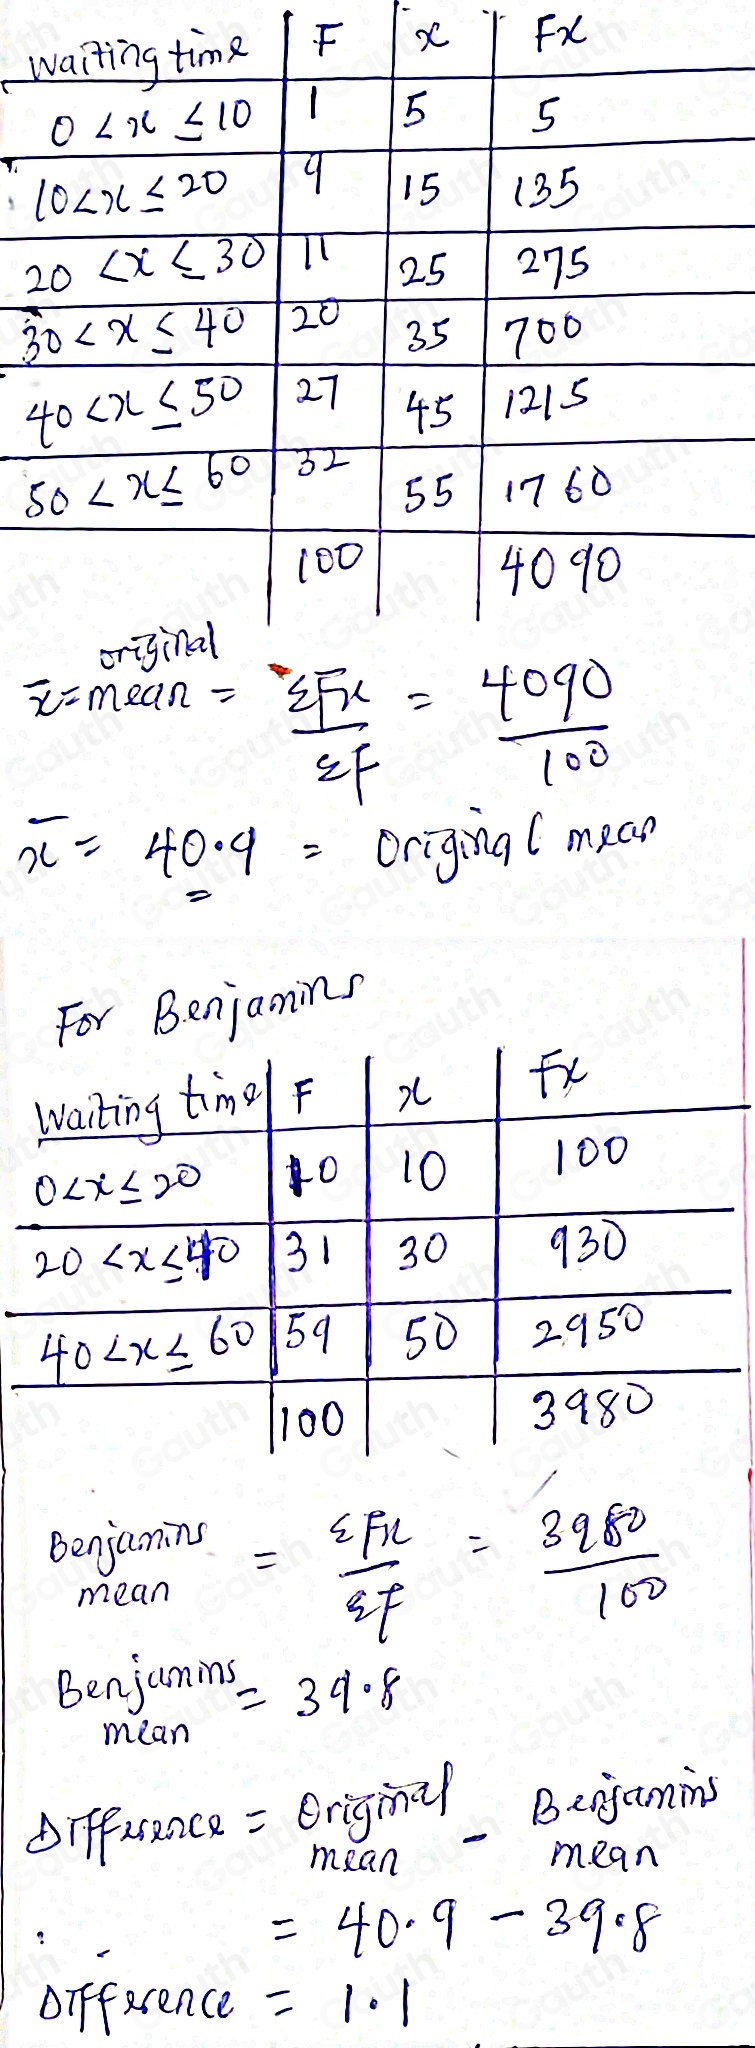 waiting time | F | x | Fx
0 < x ≤ 10 | 1 | 5 | 5
10 < x ≤ 20 | 9 | 15 | 135
20 < x ≤ 30 | 11 | 25 | 275
30 < x ≤ 40 | 20 | 35 | 700
40 < x ≤ 50 | 27 | 45 | 1215
50 < x ≤ 60 | 32 | 55 | 1760
100 | 4090
original
x̄ = mean = ΣFx/ΣF = 4090/100
x̄ = 40.9 = Original mean
For Benjamins
Waiting time | F | x | Fx
0 < x ≤ 20 | 10 | 10 | 100
20 < x ≤ 40 | 31 | 30 | 930
40 < x ≤ 60 | 59 | 50 | 2950
100 | 3980
Benjamins mean = ΣFx/ΣF = 3980/100
Benjamins mean = 39.8
Difference = Original mean - Benjamins mean
= 40.9 - 39.8
Difference = 1.1